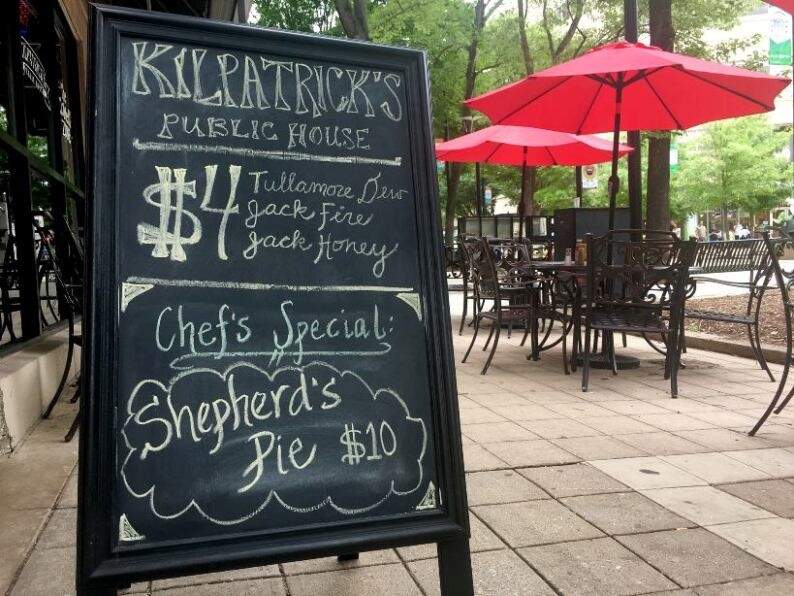 KILPATRICK'S
PUBLIC HOUSE
$4 Tullamore Dew
Jack Fire
Jack Honey
Chef's Special:
Shepherd's
Pie $10